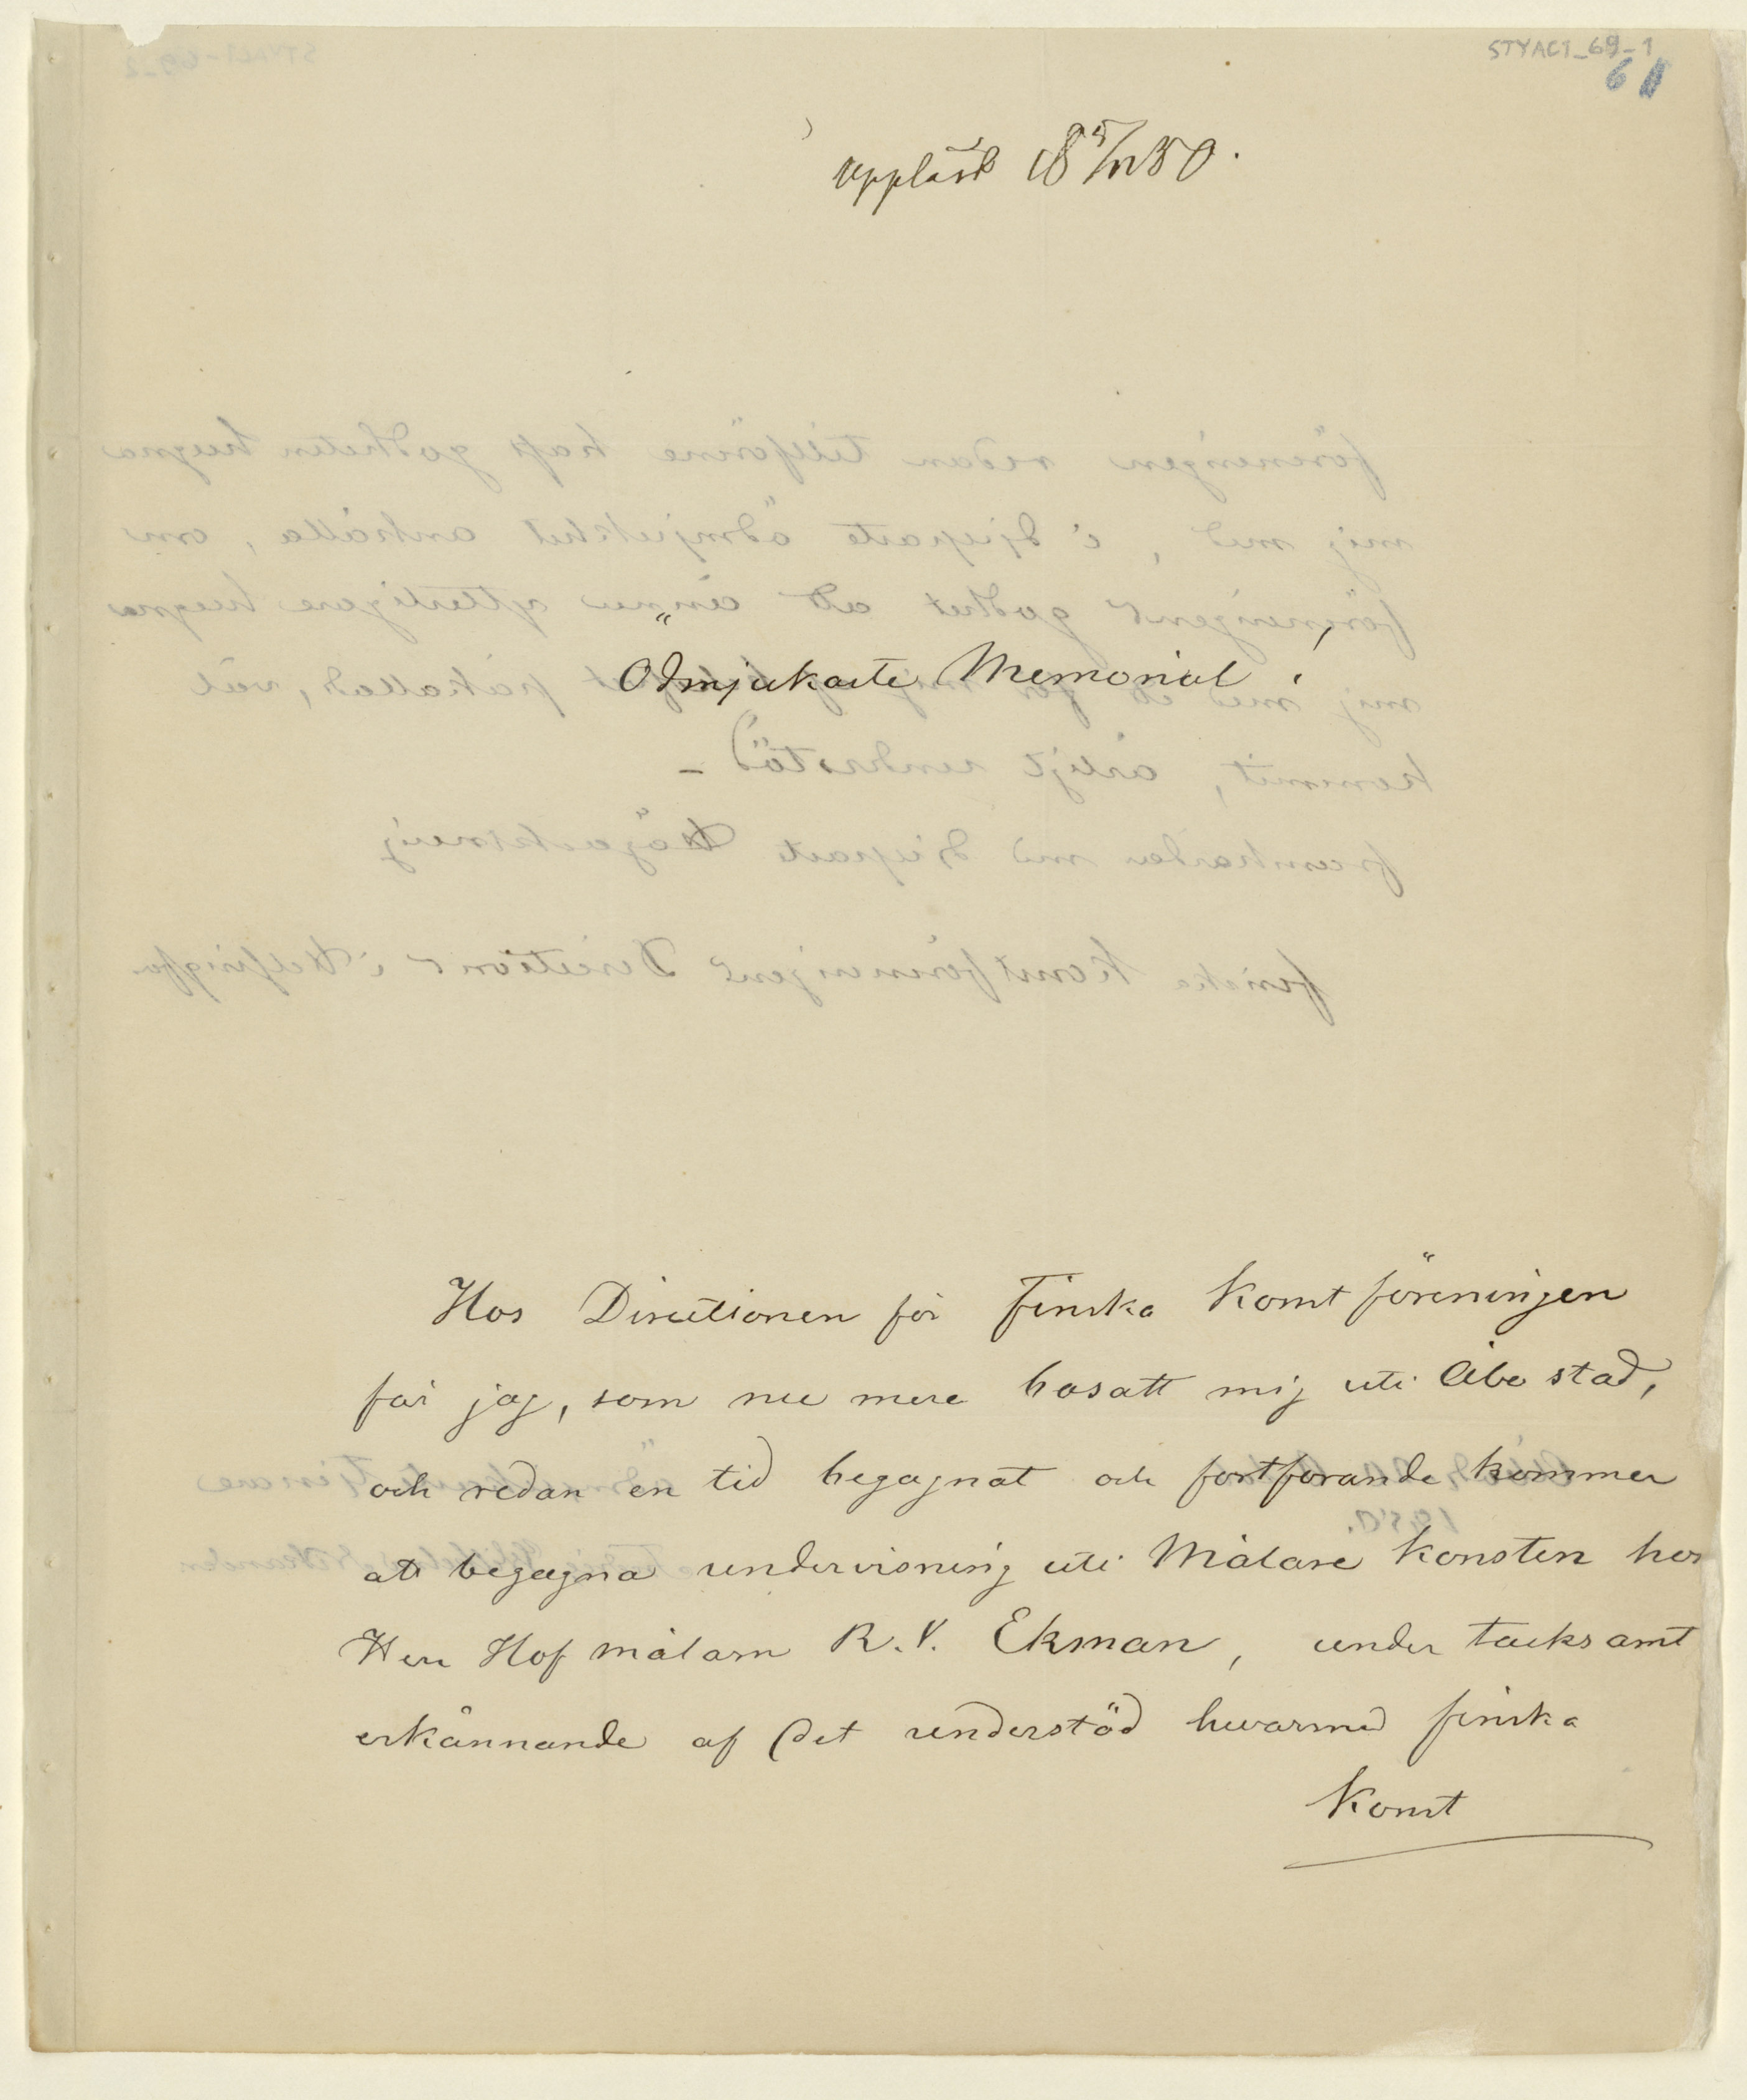 STYACT_69_1
61
Uppläst 18 5/12 50.
Ödmjukaste Memorial!
Hos Directionen för Finska Konstföreningen
får jag, som nu mera bosatt mig uti Åbo stad,
och redan en tid begagnat och fortfarande kommer
att begagna undervisning uti Målare Konsten hos
Herr Hof målarn R. V. Ekman, under tacksamt
erkännande af det understöd hwarmed finska
Konst